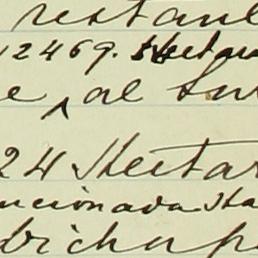 restan
12469. Hectar
e al Sur
24 Hectar
mencionada Ha
dicha p